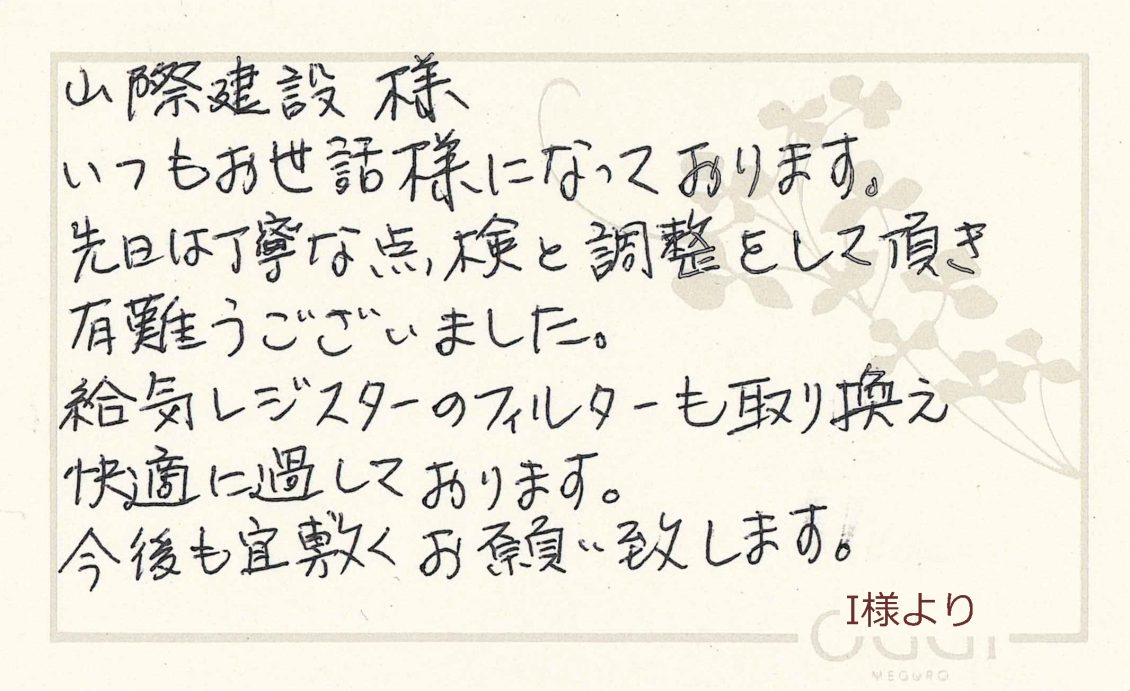 山際建設 様
いつもお世話様になっております。
先日は丁寧な点検と調整をして頂き
有難うございました。
給気レジスターのフィルターも取り換え
快適に過しております。
今後も宜敷くお願い致します。
I様より
OGGI
MEGURO